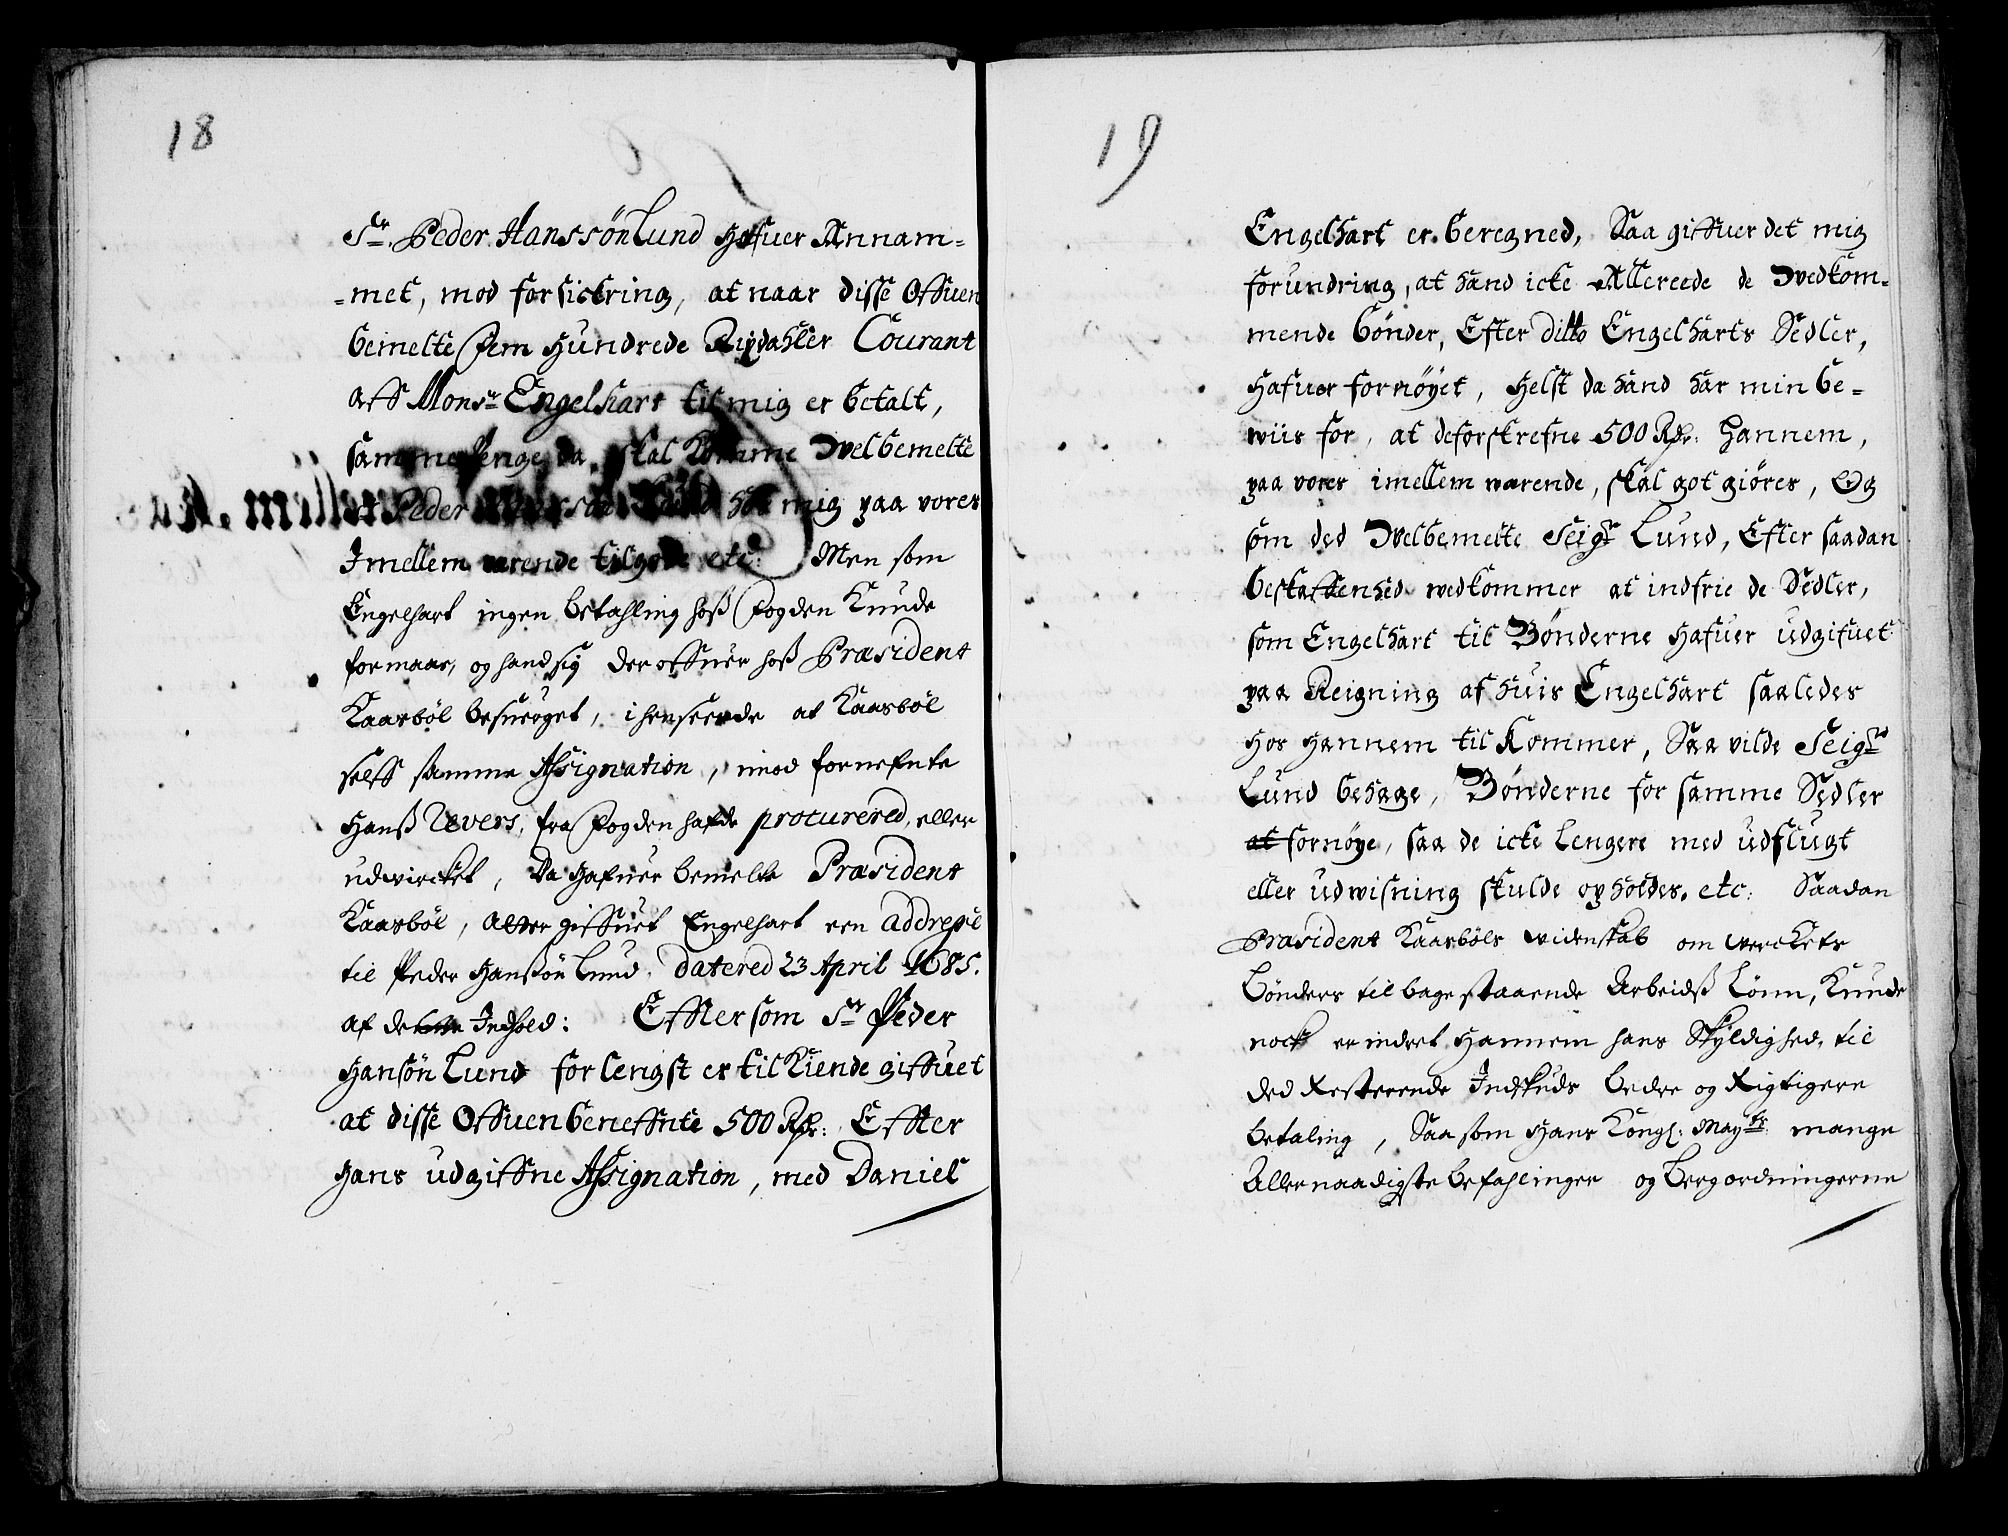 18
Sr. Peder Hanssön Lund Hafuer Annam=
=met, mod forsictring, at naar disse Offuen
bemelte Fem Hundrede Rixdahler Courant
aff Monsr Engelhart til mig er betalt,
samme Penge da skal Komme Velbemelte
Peder hos mig paa vores
Imellem værende tilgode etc: Men som
Engelhart ingen betahling hoß Fogden Kunde
formaae, og hand sig deroffuer hoß Præsident
Kaarböl besuerget, i henseende at Kaarböl
selff samme Assignation, imod fornefnte
Hanß Revers, fra Fogden hafde procurered, eller
udvircket, Da Hafuer bemelte Præsident
Kaarböl, giffuet Engelhart een addresse
til Peder Hanßön Lund, datered 23 April 1685.
af de Indhold: Effter som Sr Peder
Hansön Lund forlengst er til Kiende giffuet
at disse Offuenbeneffnte 500 Rdr: Effter
Hans udgiffne Assignation, med Daniel
19
Engelhart er beregned, Saa giffuer det mig
forundring, at hand icke Allereede de Vedkom=
mende bönder, Efter ditto Engelharts Sedler,
Hafuer fornöyet, Helst da hand har min be=
wiis for, at de forskrefne 500 Rdr: Hannem,
paa vores imellem værende, skal got giöres, Og
som ded Velbemelte Seigr Lund, Efter saadan
beskaffenhed vedkommer at indfrie de Sedler,
som Engelhart til Bönderne Hafuer udgifuet
paa Reigning af huis Engelhart saaledes
Hos Hannem til Kommer, Saa vilde Seigr
Lund behage, Bönderne for samme Sedler
at fornöye, saa de icke lengere med udflugt
eller udwisning skulde opholdes. etc: Saadan
Præsident Kaarböls widenskab om werckets
bönders tilbagestaaende Arbeidß Lönn, Kunde
nock erindret Hannem hans Skyldighed, til
ded Resterende Indskuds bedre og Rigtigere
betaling, Saa som Hans Kongl: Maytz: mange
Allernaadigste befahlinger og bergordningerne